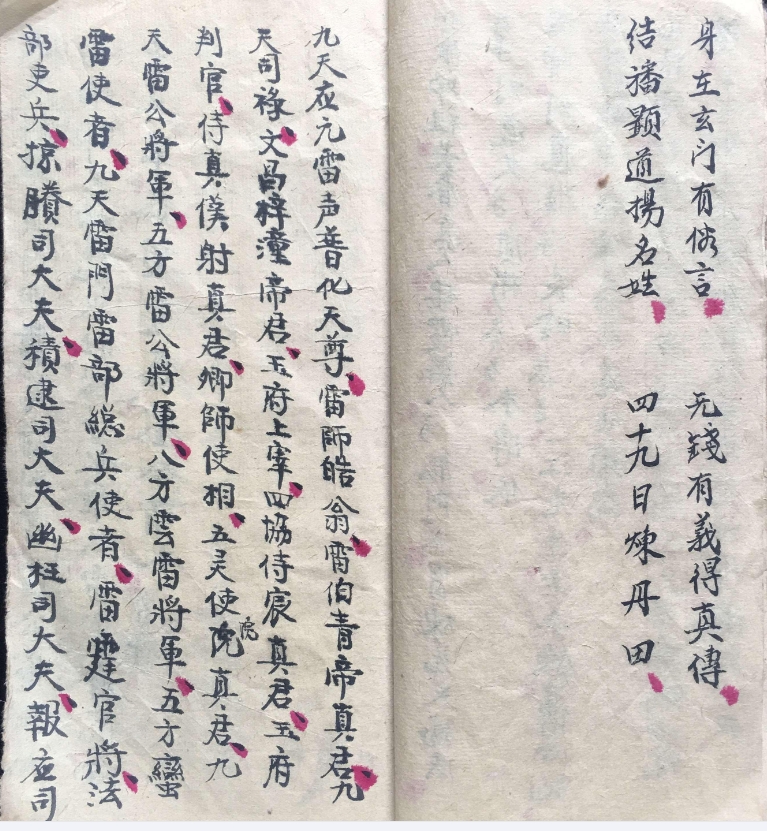 身在玄门有俗言 无錢有義得真傳
结旙顯道揚名姓 四十九日煉丹田
九天应元雷声普化天尊雷師皓翁雷伯青帝真君九
天司祿文昌梓潼帝君玉府上宰四協侍宸真君玉府
判官侍真僕射真君卿師使相五灵使院真君九
天雷公將軍五方雷公將軍八方雲雷將軍五方蠻
雷使者九天雷門雷部総兵使者雷霆官將法
部吏兵掠賸司大夫積逮司大夫幽枉司大夫報应司